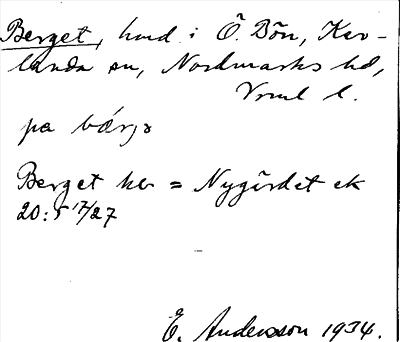 Berget, hmd i Ö Bön, Kar-
landa sn, Nordmarks hd,
Vrml l.
pa bærjə
Berget her = Nygärdet ek
20:5 17/27
E. Andersson 1934.